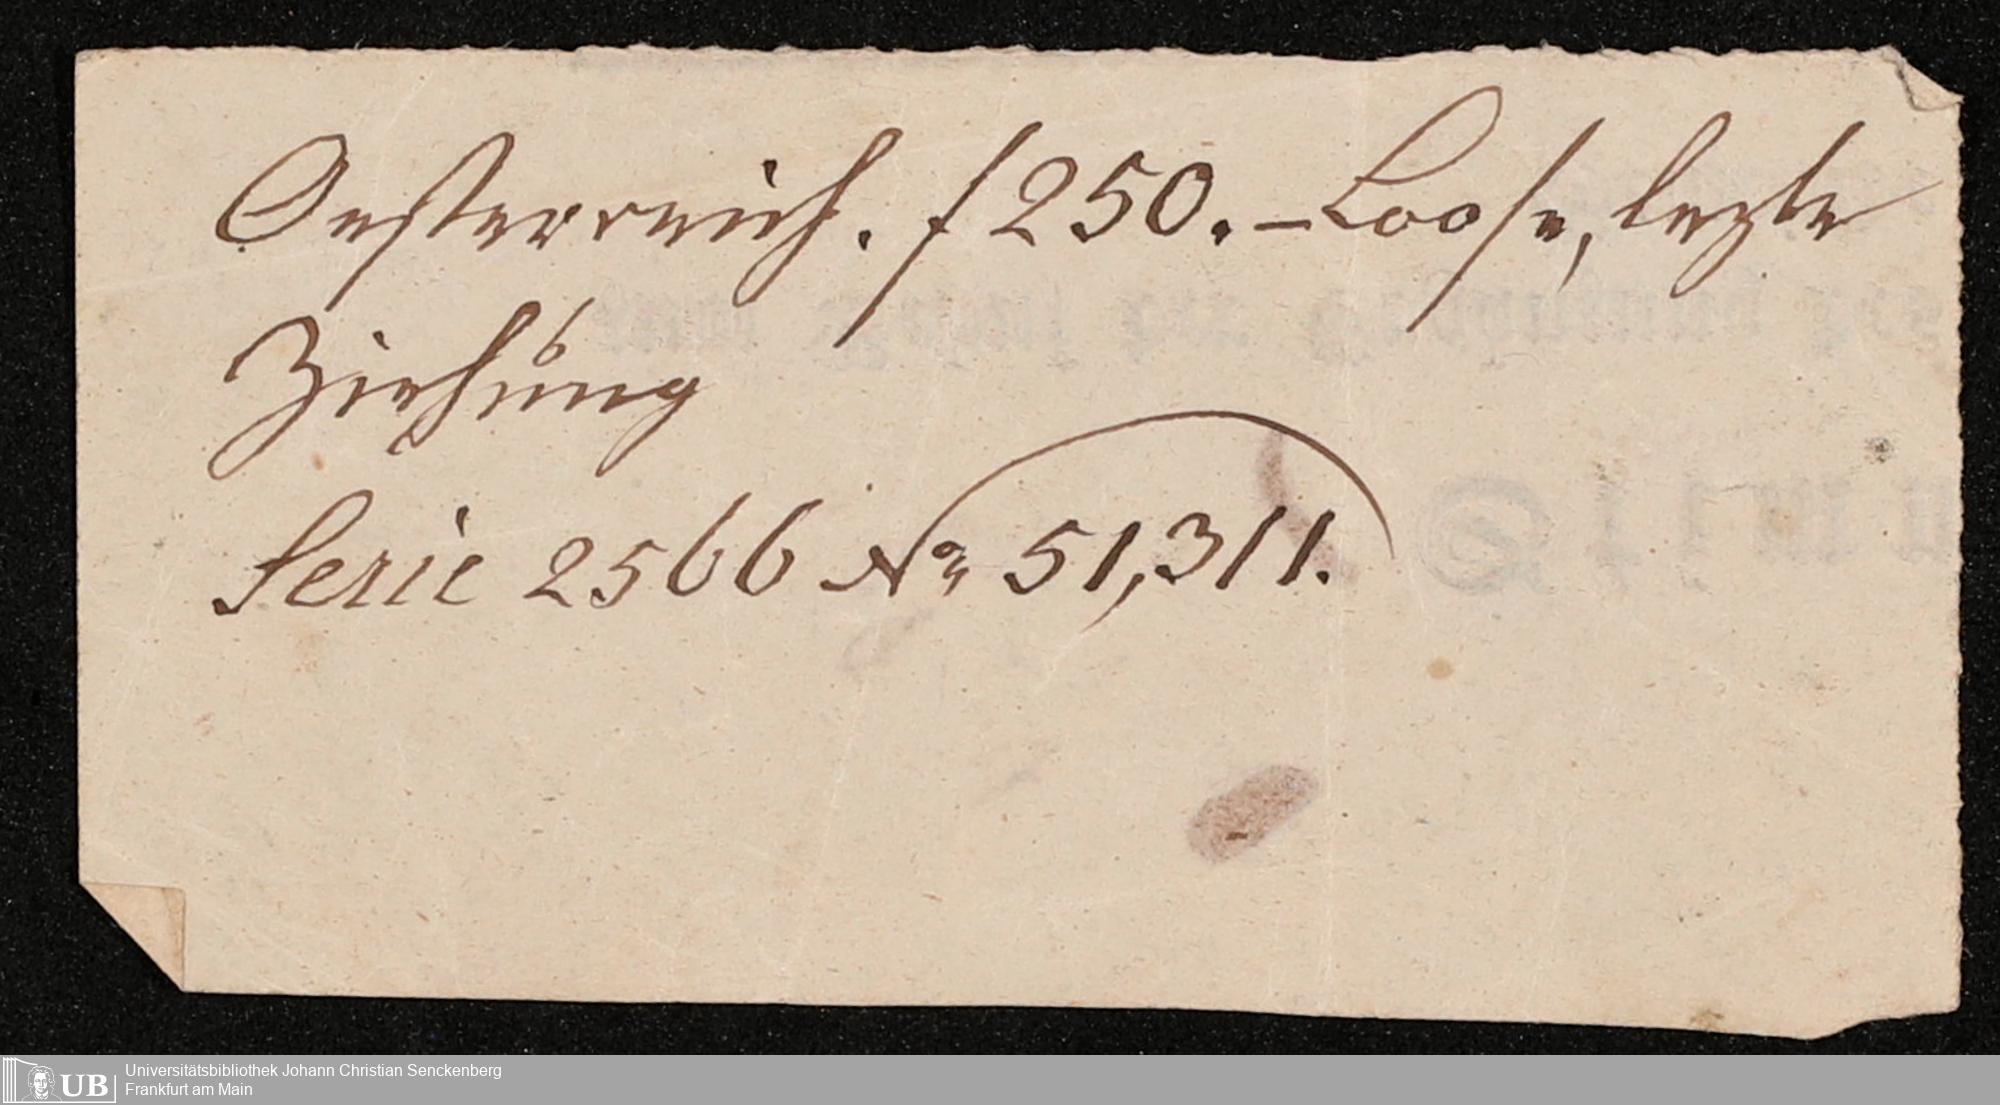 Oesterreich. f 250.–Loose, lezte
Ziehung
Serie 2566 No 51,311.
UB
Universitätsbibliothek Johann Christian Senckenberg
Frankfurt am Main